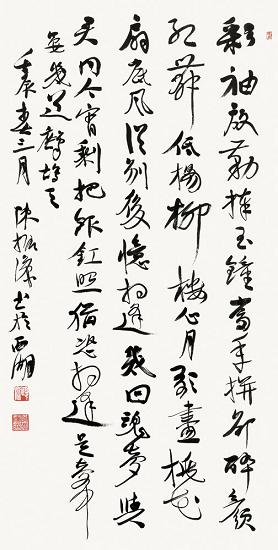 彩袖殷勤捧玉鍾當年拚却醉顏
紅舞低楊柳樓心月歌盡桃花
扇底風從別後憶相逢幾回魂夢與
君同今宵剩把銀釭照猶恐相逢是夢中
晏幾道鷓鴣天
壬辰春三月 陳振濂書於西湖